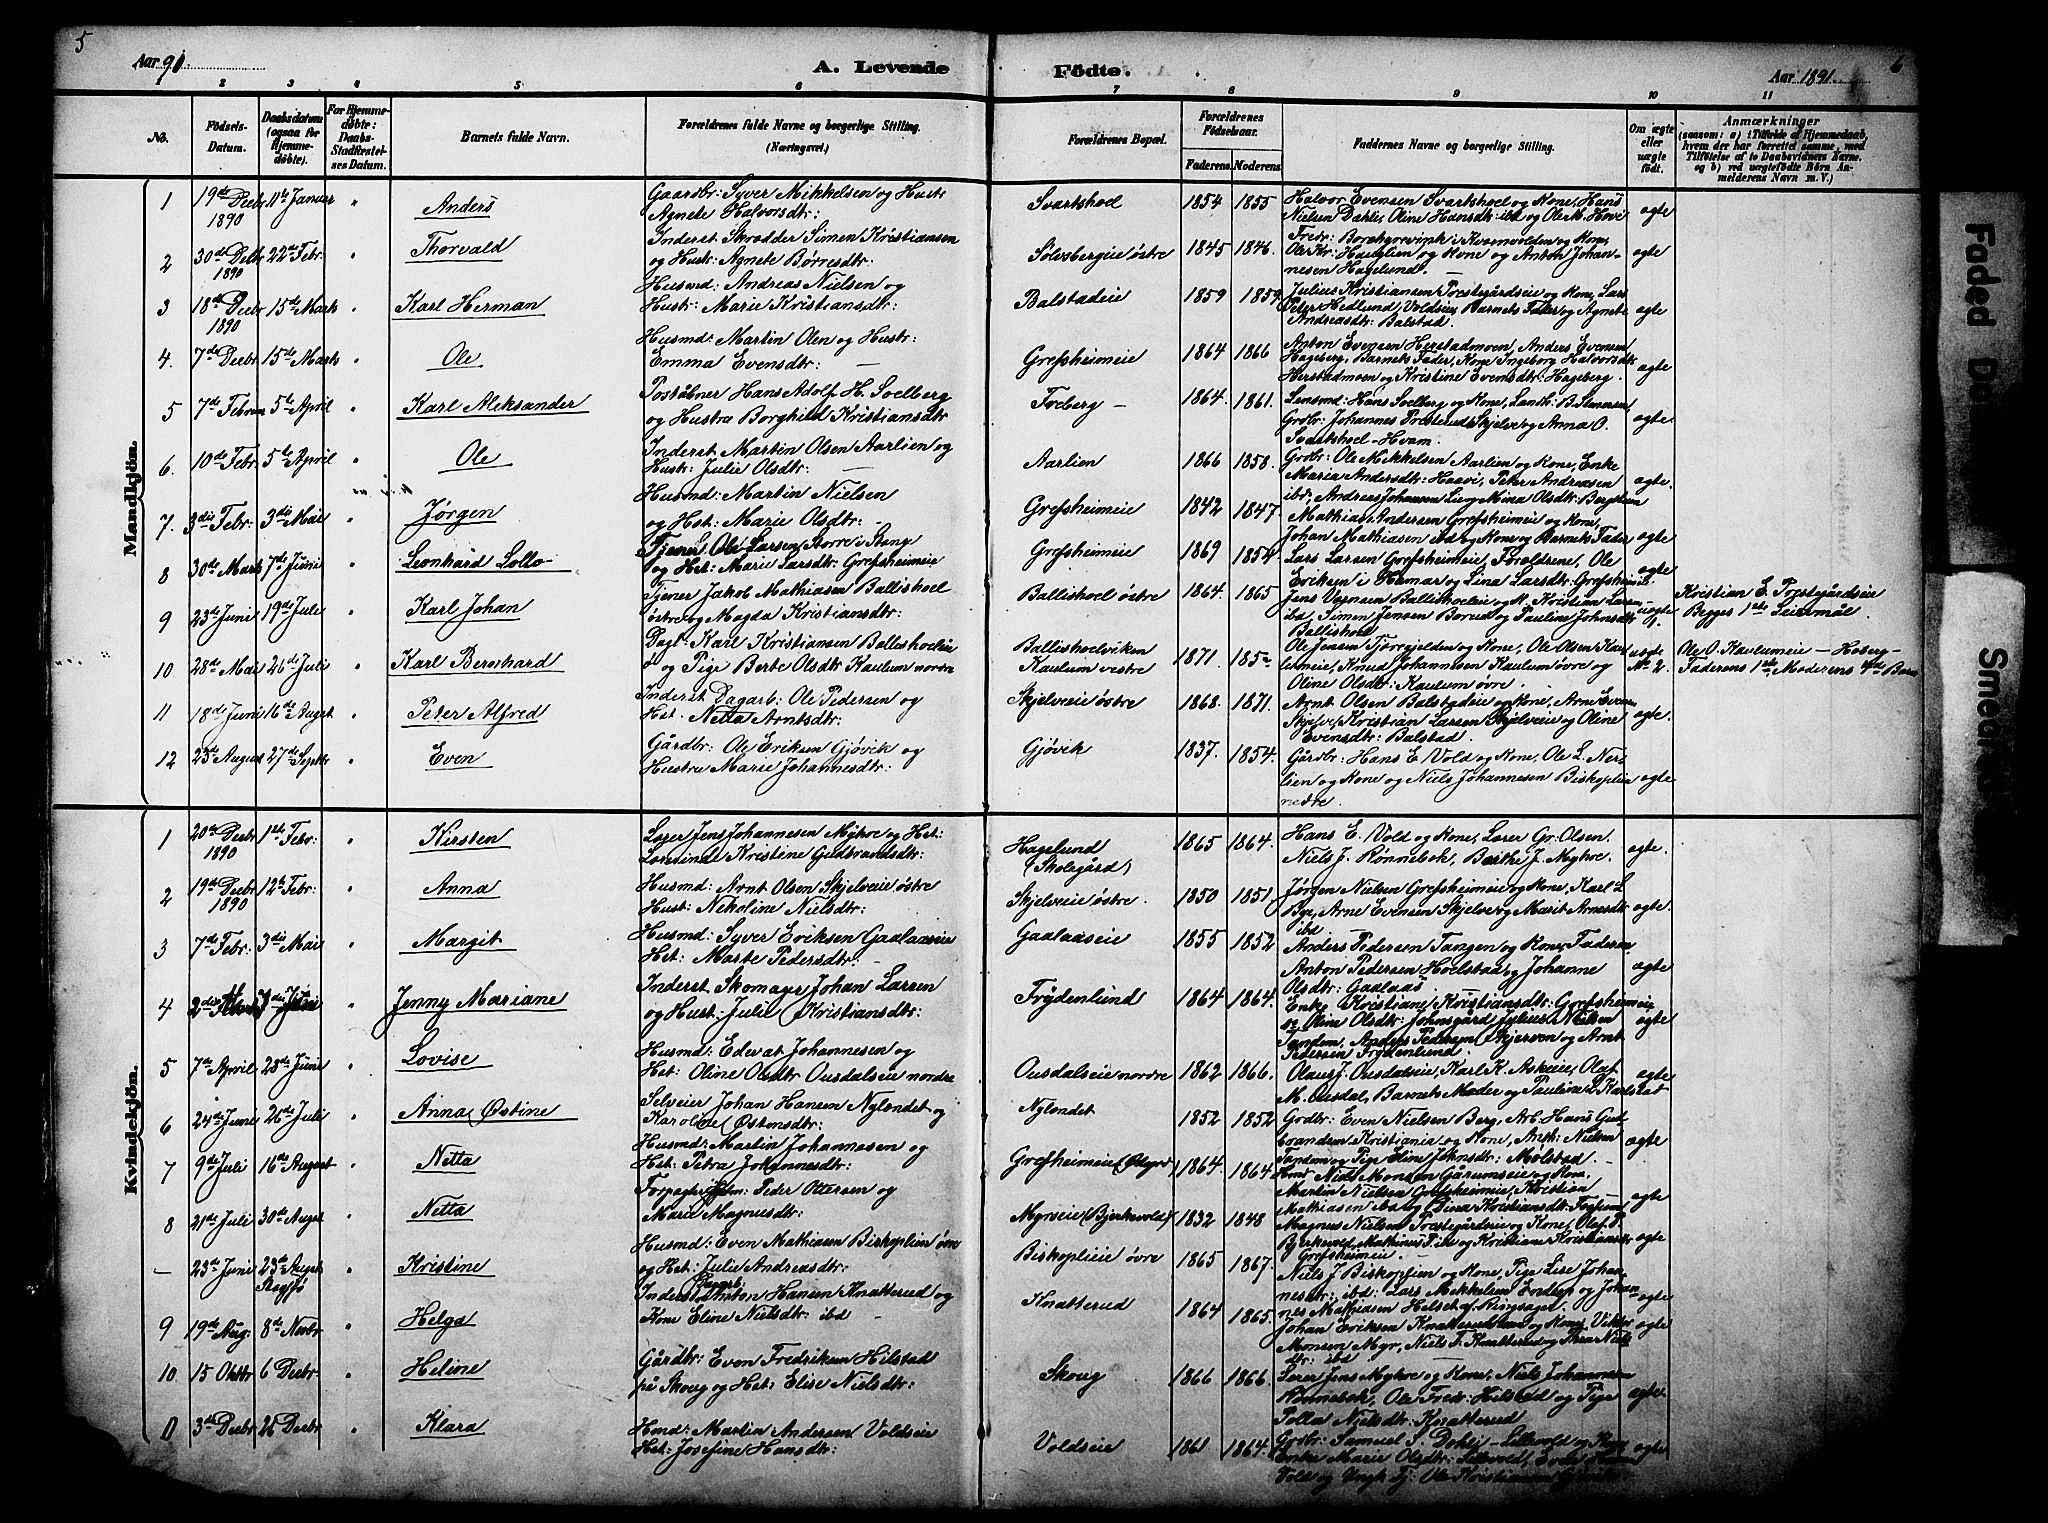 5
Aar 91.
A. Levende
Födte.
Aar 1891.
6
1 2 3 4 5 6 7 8 9 10 11
No.
Födsels-Datum.
Daabsdatum (ogsaa for Hjemme-döbte).
For Hjemme-döbte: Daabs-Stadfæstel-ses Datum.
Barnets fulde Navn.
Forældrenes fulde Navne og borgerlige Stilling.
(Næringsvei.)
Forældrenes Bopæl.
Forældrenes Födselsaar.
Faderens. Moderens.
Faddernes Navne og borgerlige Stilling.
Om ægte eller uægte födt.
Anmærkninger
(saasom: a) i Tilfælde af Hjemmedaab,
hvem der har forrettet samme, med
Tilföielse af to Daabsvidners Navne.
og b) ved uægtefödte Börn An-
melderens Navn m. V.)
Mandkjön.
1 19de Decbr 1890 11te Januar " Anders
Gaardbr: Syver Mikkelsen og Hustr
Agnete Halvorsdtr:
Svartshoel 1854 1855
Halvor Evensen Svartshoel og Kone, Hans
Nielsen Dahle, Oline Hansdtr: ibd og Hovi
ægte
2 30de Decbr 1890 22de Febr: " Thorvald
Inderst Skrædder Simen Kristiansen
og Hustr: Agnete Børresdtr:
Sølvsbergeie østre 1845 1846.
Fredr: Borchgrevink i Kvernvolden og Kone,
Ole Kr: Hauglien og Kone og Anton Johan-
nesen Hagelund.
ægte
3 18de Decbr 1890 15de Marts " Karl Herman
Husmd: Andreas Nielsen og
Hustr: Marie Kristiansdtr:
Balstadeie 1859 1859
Julius Kristiansen Prestegårdseie og Kone, Lars
Peter Hedlund, Voldseie, Barnets Fader og Agnete
Andreasdtr: Balstad.
ægte
4. 7de Decbr 15de Marts " Ole
Husmd: Martin Olsen og Hustr:
Emma Evensdtr:
Grefsheimeie 1864 1866
Anton Evensen Herstadmoen, Anders Evensen
Hageberg, Barnets Fader, Kone Ingeborg Halvorsdtr
Herstadmoen og Kristine Evensdtr: Hageberg.
ægte
5 7de Februar 5te April " Karl Aleksander
Postaabner Hans Adolf H. Soelberg
og Hustru Borghild Kristiansdtr
Freberg 1864. 1861.
Lensmd: Hans Soelberg og Kone, Landh: B. Simensen,
Grdbr: Johannes Præsterud Skjelve og Anna O.
Svartshoel-Hvam.
ægte.
6. 10de Febr. 5te April " Ole
Inderst Martin Olsen Aarlien og
Hustr: Julie Olsdtr:
Aarlien 1866 1858.
Grdbr: Ole Mikkelsen Aarlien og Kone, Enke
Maria Andersdtr: Haavi, Peter Andreasen
ibd, Andreas Johansen Lie og Mina Olsdtr: Berg
ægte.
7. 3die Febr: 3die Mai " Jørgen
Husmd: Martin Nielsen
og Hst: Marie Olsdtr:
Grefsheimeie 1842 1847
Mathias Andersen Grefsheimeie og Kone,
Johan Mathiasen ibd og Kone og Barnets Fader
ægte
8 30de Marts 7de Juni " Leonhard Lollo
Tjener Ole Larsen Storre i Stange
og Hst: Marie Larsdtr: Grefsheimeie
Grefsheimeie 1869 1854.
Lars Larsen Grefsheimeie, Forældrene, Ole
Eriksen i Hamar og Lina Larsdtr: Grefsheimeie
ægte
9 23de Juni 19de Juli " Karl Johan
Tjener Jakob Mathiasen Ballishoel
østre og Magda Kristiansdtr:
Ballishoel østre 1864. 1865
Jens Vognsen Ballishoeleie og K., Kristian Larsen
ibd, Simen Jensen Borud og Pauline Johnsdtr
Ballishoel
uægte 1.
Kristian E. Præstgårdseie
Begges 1ste Leiermål
10 28de Mai 26de Juli " Karl Bernhard
Dagl: Karl Kristiansen Ballishoeleie
og Pige Berte Olsdtr Kaulum nordre
Ballishoelviken
Kaulum vestre 1871.
Ole Jensen og Kone, Ole Olsen Kau-
lumeie, Knud Johannesen Kaulum øvre og
Oline Olsdtr: Kaulum øvre.
uægte No 2.
Ole O. Kaulumeie - Hoberg
Faderens 1ste Moderens 4de Barn
11 18de Juni 16de August " Peter Alfred
Inderst Dagarb: Ole Pedersen og
Hst. Netta Arntsdtr:
Skjelveeie østre 1868. 1871.
Arnt Olsen Balstadeie og Kone, Arne Evensen
Skjelve, Kristian Larsen Skjelveie og Oline
Evensdtr: Balstad.
ægte.
12 23de August 27de Septbr " Even
Gårdbr: Ole Eriksen Gjøvik og
Hustru Marie Johannesdtr:
Gjøvik 1837. 1854.
Gårdbr: Hans E Vold og Kone, Ole L. Ner-
lien og Kone og Niels Johannesen Biskoplien
nedre.
ægte
Kvindekjön.
1 20de Decbr 1890 1ste Febr: " Kirsten
Lærer Jens Johannesen Myhre og Hst:
Lovinde Kristine Gudbrandsdtr:
Hagelund
(Skolegård) 1865 1864.
Hans E. Vold og Kone, Lærer Gr: Olsen.
Niels J. Rønnebæk, Berthe J. Myhre.
ægte.
2 19de Decbr 1890 12te Febr: " Anna
Husmd: Arnt Olsen Skjelveie østre
Hust: Nikoline Nielsdtr:
Skjelveie østre. 1850 1851.
Jørgen Nielsen Grefsheimeie og Kone, Karl L.
Bye, Arne Evensen Skjelve og Marit Arnesdtr
ibd
ægte.
3 7de Febr: 3die Mai " Margit
Husmd: Syver Eriksen Gaalaaseie
Hst: Marte Pedersdtr:
Gaalaaseie 1855 1852
Anders Pedersen Tangen og Kone, Faderen,
Anton Pedersen Hoelstad og Johanne
Olsdtr: Gaalaas
ægte
4 2den " Jenny Mariane
Inderst Skomager Johan Larsen
og Hust: Julie Kristiansdtr:
Frydenlund 1864 1864.
Enke Kristiane Kristiansdtr: Grefsheimeie
og Oline Olsdtr: Johnsgård, Julius Nielsen
Tanden, Anders Pedersen Skjerven og Arnt
Pedersen Frydenlund.
ægte
5 7de April 28de Juni " Lovise
Husmd: Edevat Johannesen og
Hst: Oline Olsdtr Ousdalseie nordre
Ousdalseie nordre 1862 1866.
Olaus J. Ousdalseie, Karl K. Askeie, Olaf
M. Ousdal, Barnets Moder og Pauline L. Karlstad
ægte
6 24de Juni 26de Juli " Anna Østine
Selveier Johan Hansen Nylændet og
Karoline Østensdtr:
Nylændet 1852 1852
Grdbr: Even Nielsen Berg, Arb. Hans Gud-
brandsen Kristiania og Kone, Anth: Nielsen
Tanden og Pige Eline Johnsdtr: Mølstad.
ægte
7 9de Juli 16de August " Netta
Husmd: Martin Johannesen og
Hst: Petra Johannesdtr:
Grefsheimeie 1864. 1864
Hmd Niels Monsen Gårumseie og Kone,
Martin Nielsen Grefsheimeie, Kristian
Mathiasen ibd og Dina Kristiansdtr: Fossum
ægte
8 21de Juli 30de August " Netta
Forpagter Peder Ottersen og
Marie Magnusdtr:
Myrseie (Bjerkevold) 1832 1848
Magnus Nielsen Præstegårdseie og Kone, Olaf P.
Bjerkevold, Mathinus Pike og Kristiane Kristiansdtr
Grefsheimeie.
ægte
- 23de Juni 23de August " Kristine
Husmd: Even Mathiasen Biskoplien øvre
og Hst: Julie Andreasdtr:
Biskoplieie øvre 1865 1867.
Niels J Biskoplien og Kone, Pige Lise Johan-
nesdtr: ibd: Lars Mikkelsen Endlep og Johan-
nes Mathiasen Helset af Ringsager.
ægte
9 19de Aug: 8de Novbr " Helga
Inderst Dagarb: Anton Hansen Knatterud og
Kone Eline Nielsdtr: ibd
Knatterud 1864 1865.
Johan Eriksen Knatterud og Kone, Viktor
Monsen Myr, Niels T. Knatterud og Thea Niels-
dtr: ibd
ægte
10 15 Oktbr 6 Decbr " Heline
Gårdbr: Even Fredriksen Hilstad
på Skoug og Hst: Elise Nielsdtr:
Skoug 1866 1866.
Lærer Jens Myhre og Kone, Niels Johannesen
Rønnebæk, Ole Fredr: Hilstad og Pige
Polla Nielsdtr: Knatterud
ægte
11 3de Decbr 26 Decbr " Klara
Hmd: Martin Andersen Voldseie
Hst: Josefine Hansdtr:
Voldseie 1861 1864.
Grdbr: Samuel S. Dæhli - Lillevold og Kone
Enke Marie Olsdtr: Lillevold, Even Hansen
Vold og Ungk. Tj: Ole Kristiansen
ægte
Faded
Smeared